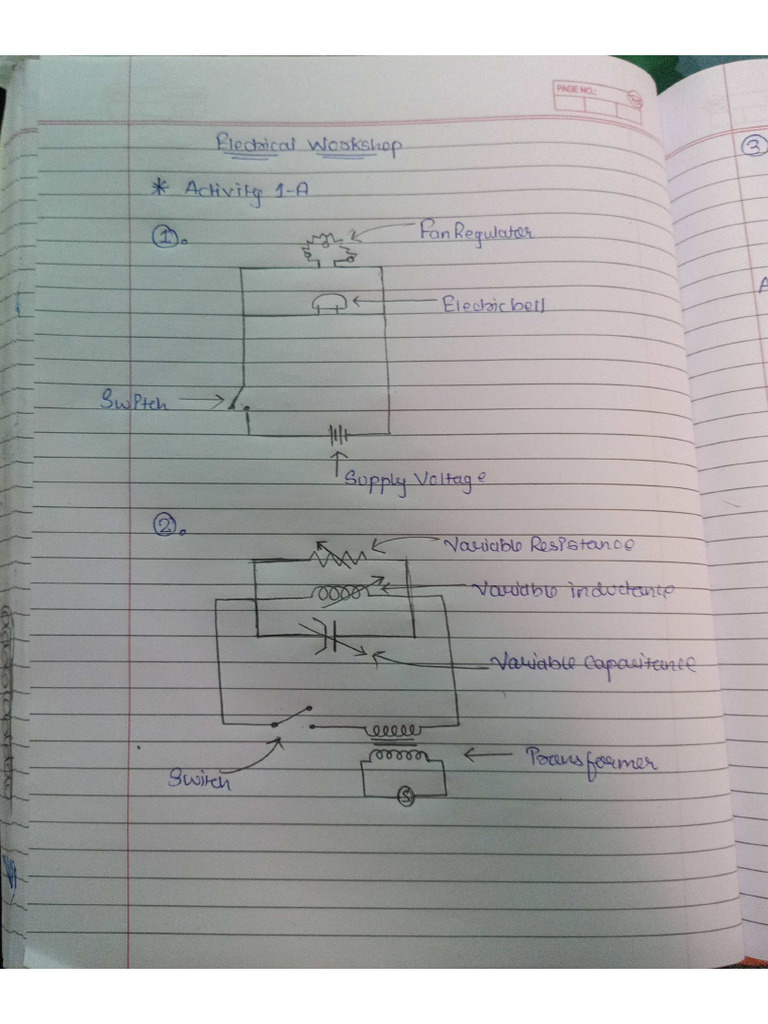 PAGE NO.:
Electrical Workshop
3
* Activity 1-A
1.
Fan Regulator
Electric bell
A
Switch
Supply Voltage
2.
Variable Resistance
Variable inductance
Variable Capacitance
Switch
Transformer
S